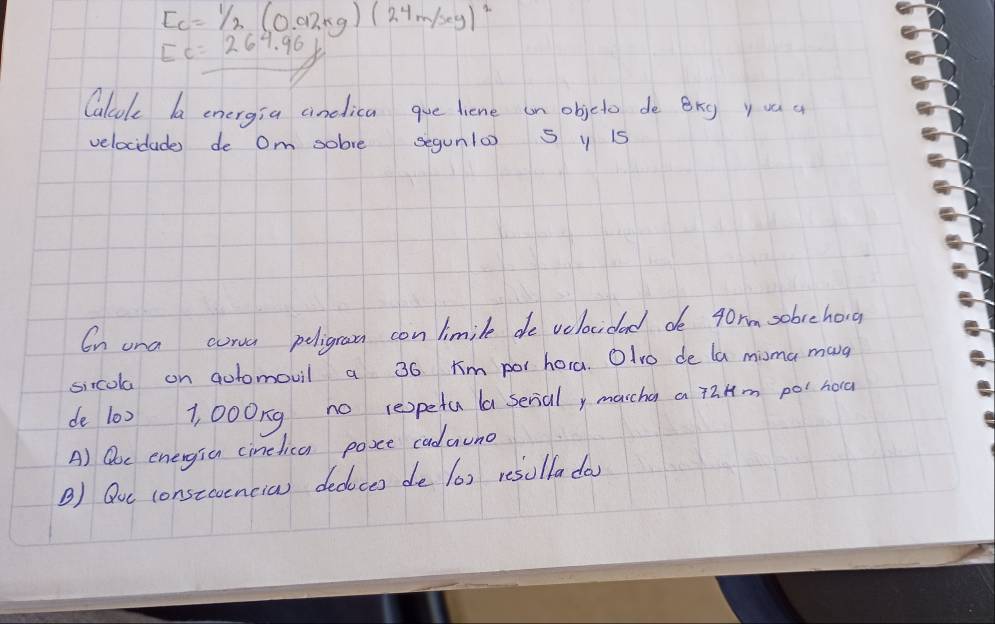 Ec= 1/2 (0.92kg) (24m/seg)²
Ec= 264.96 j
Calcule la energía cinetica que tiene un objeto de 8kg y va a
velocidades de 0m sobre segundos 5 y 15
En una curva peligrosa con limite de velocidad de 40km sobre hora
sircula un automovil a 36 Km por hora. Otro de la misma masa
de los 1,000kg no respeta la señal y marcha a 72Km por hora
A) Que energía cinetica posee cada uno
B) Que consecuencias deduces de los resultados